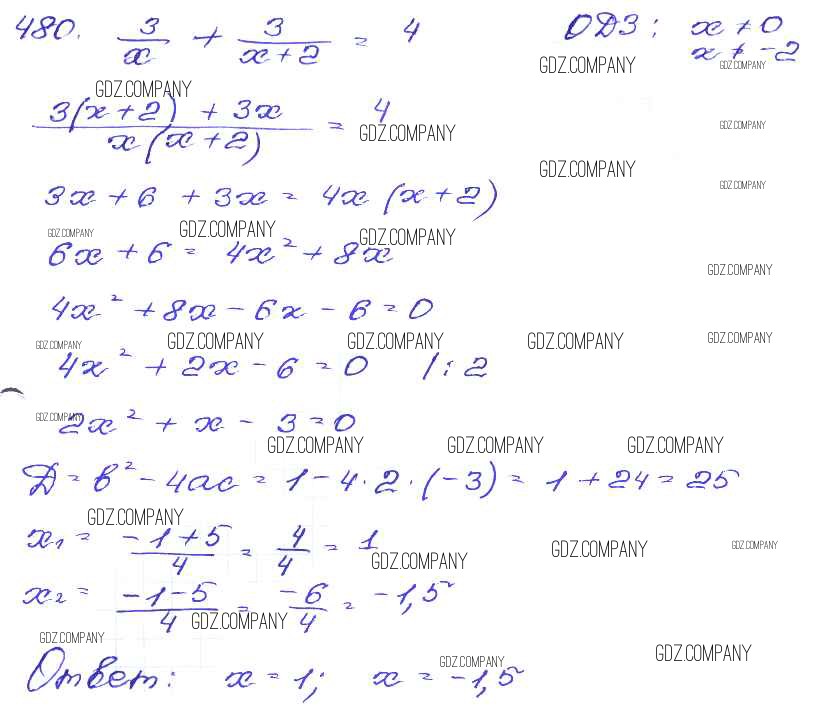 480. 3/x + 3/(x+2) = 4 ОДЗ: x ≠ 0
x ≠ -2
GDZ.COMPANY GDZ.COMPANY GDZ.COMPANY
(3(x+2) + 3x)/(x(x+2)) = 4
GDZ.COMPANY GDZ.COMPANY
GDZ.COMPANY GDZ.COMPANY
3x + 6 + 3x = 4x (x+2)
GDZ.COMPANY GDZ.COMPANY GDZ.COMPANY
6x + 6 = 4x² + 8x
GDZ.COMPANY
4x² + 8x - 6x - 6 = 0
GDZ.COMPANY GDZ.COMPANY GDZ.COMPANY GDZ.COMPANY GDZ.COMPANY
4x² + 2x - 6 = 0 /: 2
GDZ.COMPANY
2x² + x - 3 = 0
GDZ.COMPANY GDZ.COMPANY GDZ.COMPANY
Д = b² - 4ac = 1 - 4·2·(-3) = 1 + 24 = 25
GDZ.COMPANY
x₁ = (-1+5)/4 = 4/4 = 1
GDZ.COMPANY GDZ.COMPANY GDZ.COMPANY
x₂ = (-1-5)/4 = -6/4 = -1,5
GDZ.COMPANY
GDZ.COMPANY GDZ.COMPANY GDZ.COMPANY
Ответ: x = 1; x = -1,5